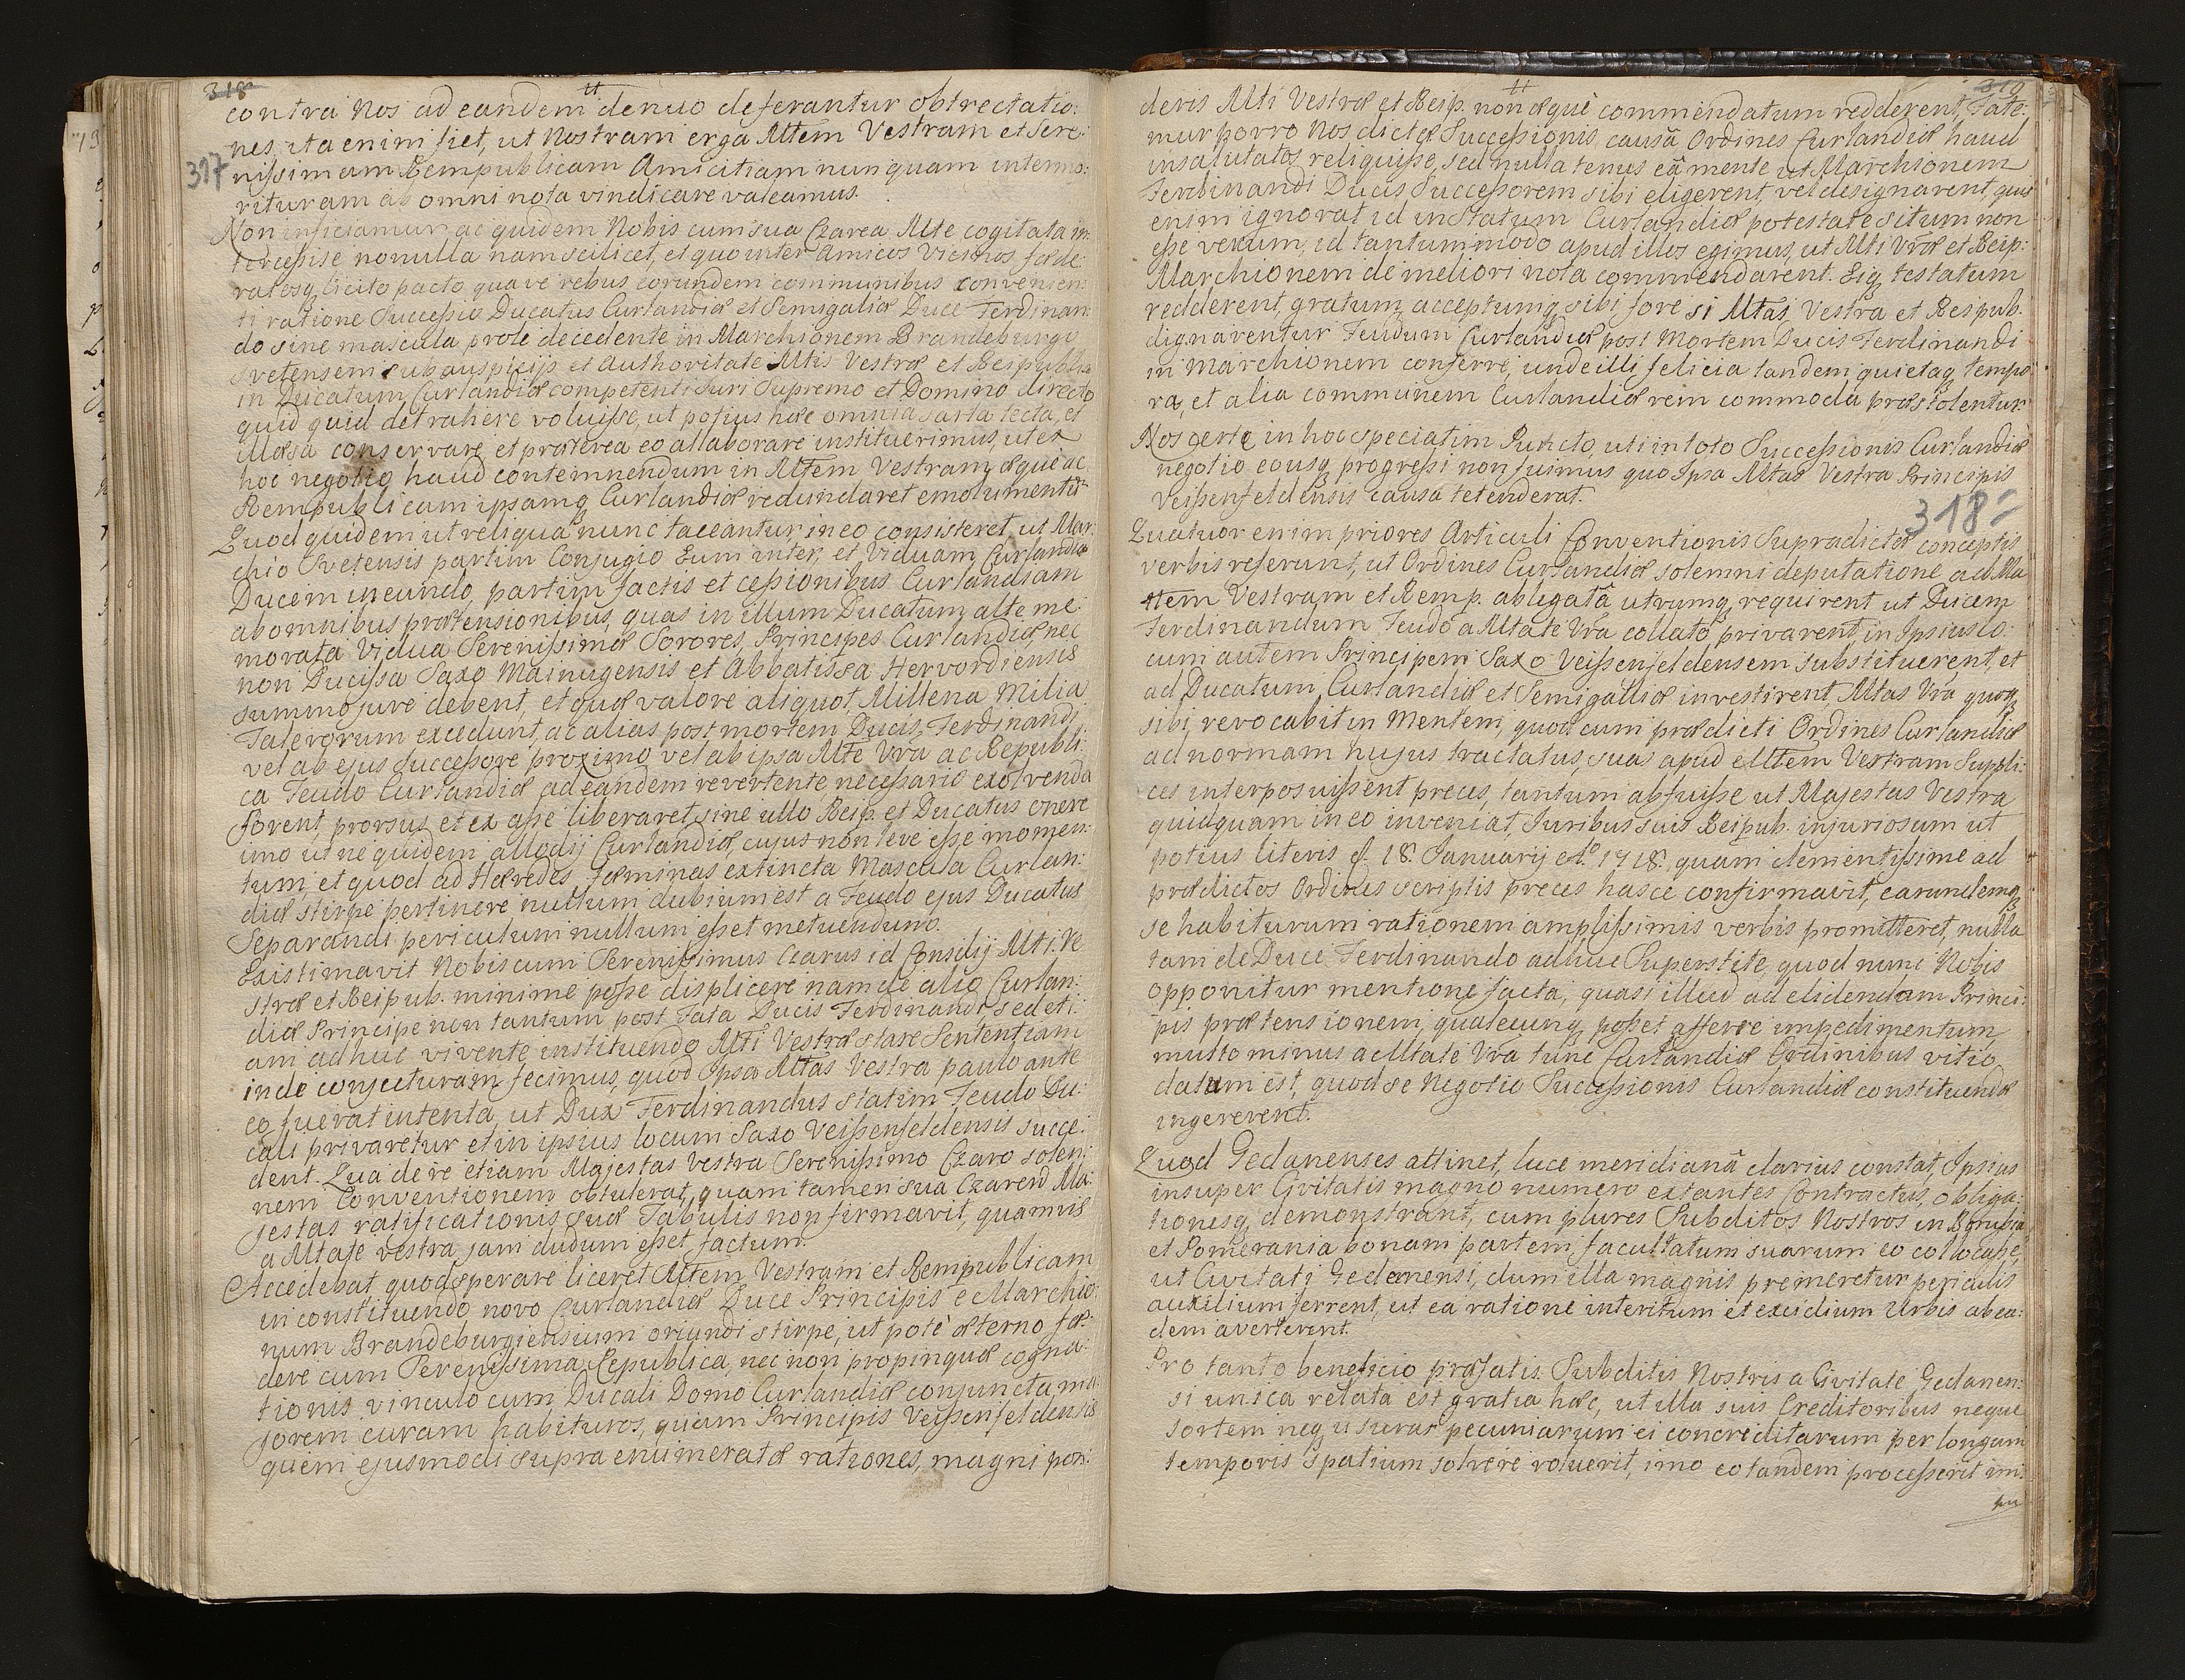 318
tt
contra Nos ad eandem denuo deferantur obtrectatio:
nes, ita enim fiet, ut Nostram erga Mtem Vestram et Sere:
317
nissimam Rempublicam Amicitiam nunquam intermo:
rituram ab omni nota vindicare valeamus.
Non inficiamur, ac quidem Nobis cum sua Czarea Mte cogitata in:
tercessise nonulla nam scilicet, et quo inter Amicos Vicinos fæde
ratosq licito pacto quave rebus eorundem communibus convenien:
ti ratione Successio Ducatus Curlandiæ et Semigaliæ Duce Ferdinan:
do sine mascula prole decedente in Marchionem Brandeburgo
Svetensem sub auspicijs et Authoritate Mtis Vestræ et Reipublicæ
in Ducatum Curlandiæ competenti Juri Supremo et Domino directo
quid quid detrahere voluisse, ut potius hæc omnia sarta tecta, et
illæsa conservare, et præterea eo allaborare instituerimus, ut ex
hoc negotio haud contemnendum in Mtem Vestram æque ac
Rempublicam ipsamq Curlandiæ redundaret emolumentū
Quod quidem ut reliqua nunc taceantur, in eo consisteret, ut Mar:
chio Svetensis partim Conjugio Eum inter, et Viduam Curlandiæ
Ducem ineundo, partim factis et cessionibus Curlandiam
ab omnibus prætensionibus, quas in illum Ducatum alte me:
morata Vidua Serenissimæ Sorores, Principes Curlandiæ, nec
non Ducissa Saxo Mainugensis et Abbatissa Hervordiensis
summo jure debent, et quæ valore aliquot Millena Milia
Talerorum excedunt, ac alias post mortem Ducis Ferdinandi
vel ab ejus Successore proximo, vel ab ipsa Mte Vra ac Republi:
ca Feudo Curlandiæ ad eandem revertente, necessario exolvenda
forent, prorsus et ex asse liberaret, sine ullo Reip. et Ducatus onere
imo ut ne quidem allodij Curlandiæ, cujus non leve esse momen:
tum, et quod ad Hæredes fæminas extincta Mascula Curlan:
diæ stirpe pertinere nullum dubium est a Feudo ejus Ducatus
Separandi periculum nullum esset metuendum.
Existimavit Nobiscum Serenissimus Czarus id Consilij Mti. Ve
stræ et Reipub. minime posse displicere nam de alio Curlan:
diæ Principe non tantum post Fata Ducis Ferdinandi, sed eti:
am adhuc vivente instituendo Mti Vestræ stare Sententiam
inde conjecturam fecimus, quod Ipsa Mtas Vestra paulo ante
eo fuerat intenta, ut Dux Ferdinandus statim Feudo Du:
cali privaretur et in ipsius locum Saxo Veissenfeldensis succe:
dent. Qua de re etiam Majestas Vestra Serenissimo Czaro solen:
nem Conventionem obtulerat, quam tamen sua Czareæ Ma:
jestas ratificationis suæ Tabulis non firmavit, quamvis
a Mtate vestra jam dudum esset factum.
Accedebat, quod sperare liceret Mtem Vestram et Rempublicam
in constituendo novo Curlandiæ Duce Principis e Marchio:
num Brandeburgiensium oriundi stirpe, ut pote æterno fæ:
dere cum Serenissima Republica, nec non propinquæ cogna:
tionis vinculo cum Ducali Domo Curlandiæ conjuncta, ma:
jorem curam habituros, quam Principis Veissenfeldensis
quem ejusmodi supra enumeratæ rationes, magni pon:
319
tt
deris Mti Vestræ et Reip. non æque commendatum redderent, Fate:
mur porro Nos dictæ Successionis, causâ Ordines Curlandiæ haud
insalutatos reliquisse, sed nulla tenus eâ mente ut Marchionem
Ferdinandi Ducis Successorem sibi eligerent, vel designarent, quis
enim ignorat id in statum Curlandiæ potestate situm non
esse verum, id tantummodo apud illos egimus, ut Mti Vræ et Reip:
Marchionem de meliori nota commendarent. Eiq testatum
redderent, gratum, acceptumq sibi fore si Mtas Vestra et Respub.
dignarentur Feudum Curlandiæ post Mortem Ducis Ferdinandi
in Marchionem conferre, unde illi felicia tandem quietaq tempo:
ra, et alia communem Curlandiæ rem commoda præstolentur.
Nos certe in hoc speciatim Puncto, uti in toto Successionis Curlandiæ
negotio eousq progressi non fuimus quo Ipsa Mtas Vestra Principis
Veissenfeldensis causa tetenderat.
318
Quatuor enim priores Articuli Conventionis Supradictæ conceptis
verbis referunt, ut Ordines Curlandiæ solemni deputatione ad Ma
ttem Vestram et Remp. ablegatâ utrumq requirent ut Ducem
Ferdinandum Feudo a Mtate Vra collato privarent, in Ipsius lo:
cum autem Principem Saxo Veissenfeldensem substituerent, et
ad Ducatum Curlandiæ et Semigalliæ investirent, Mtas Vra quoq
sibi revocabit in Mentem, quod cum prædicti Ordines Curlandiæ
ad normam hujus tractatus, suas apud Mttem Vestram Suppli:
ces interposuissent preces, tantum abfuisse ut Majestas Vestra
quidquam in eo inveniat, Juribus suis Reipub. injuriosum ut
potius literis d. 18. Januarij Ao. 1718. quam clementissime ad
prædictos Ordines scriptis preces hasce confirmavit, earundemq
se habituram rationem amplissimis verbis promitteret, nulla
tam de Duce Ferdinando adhuc Superstite, quod nunc Nobis
opponitur mentione facta, quasi illud ad elidendam Princi:
pis prætensionem, qualecunq posset afferre impedimentum,
multo minus a Mtate Vra tunc Curlandiæ Ordinibus vitio
datum est, quod se Negotio Successionis Curlandiæ constituendæ
ingererent.
Quod Gedanenses attinet, luce meridianâ clarius constat, Ipsius
insuper Civitatis magno numero extantes Contractus, obliga:
tionesq demonstrant, cum plures Subditos Nostros in Borussia
et Pomerania bonam partem facultatum suarum eo collocasse,
ut Civitati Gedanensi, dum illa magnis premeretur periculis
auxilium ferrent, ut ea ratione interitum et excidium Urbis ab ea:
dem averterent.
Pro tanto beneficio præfatis Subditis Nostris a Civitate Gedanen:
si unica relata est gratia hæc, ut illa suis Creditoribus neque
sortem neq usuras pecuniarum ei concreditarum per longum
temporis spatium solvere voluerit, imo eo tandem processerit im:
pu